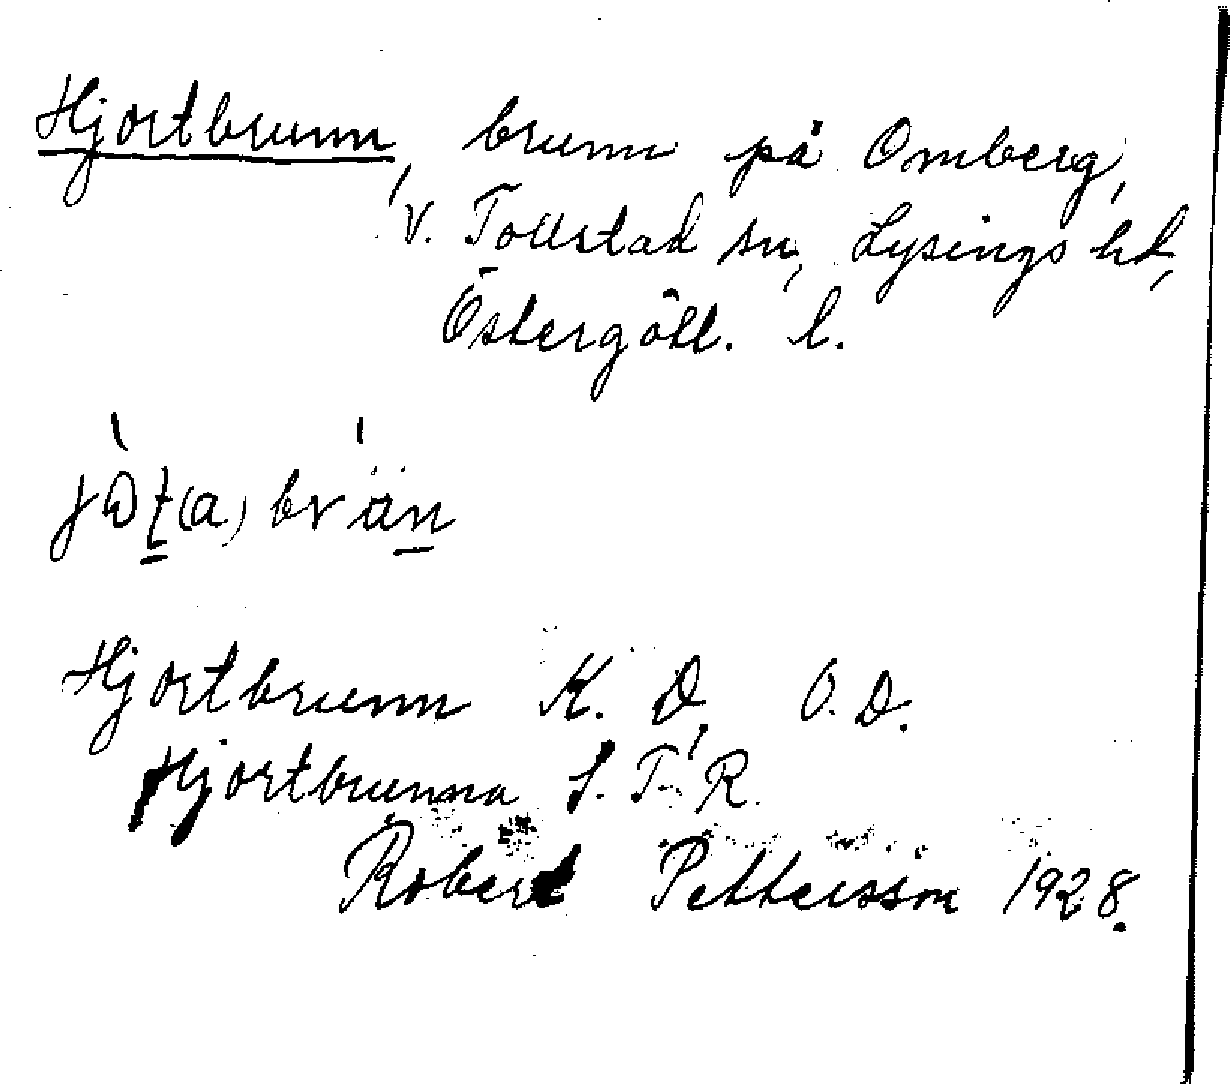 Hjortbrunn, brunn på Omberg,
V. Tollstad sn, Lysings hd,
Östergötl. l.
Hjortbrunn K. D, O. D.
Hjortbrunna S. T. R.
Robert Pettersson 1928.